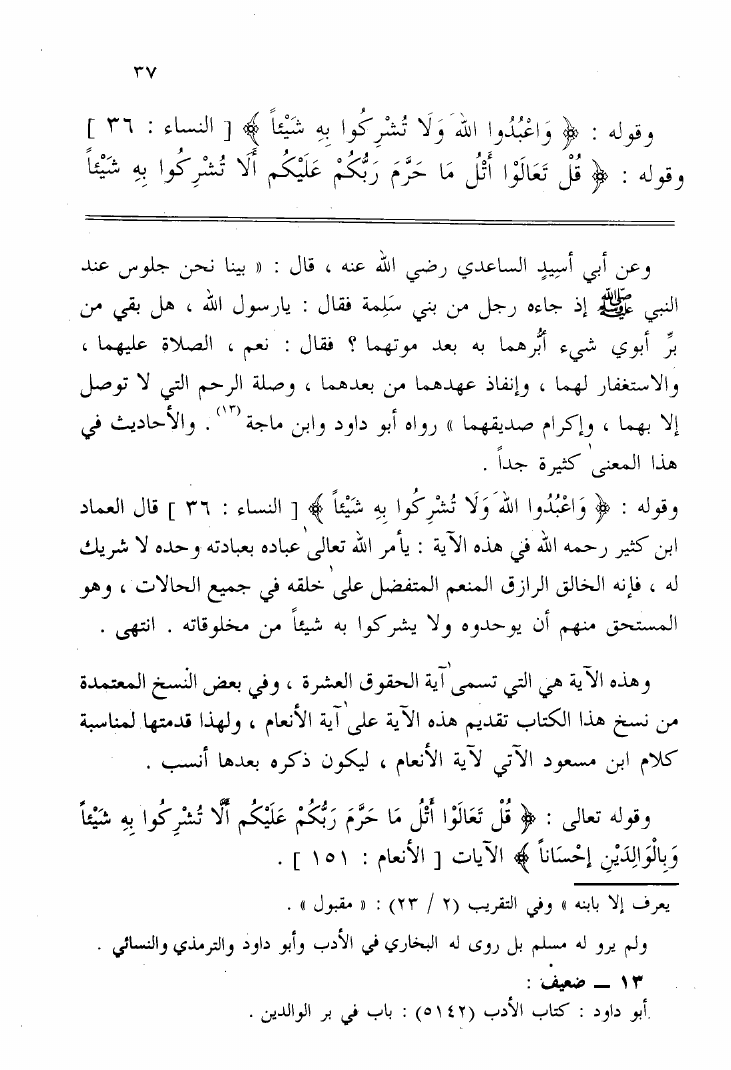 ٣٧
وقوله : ﴿ وَاعْبُدُوا اللهَ وَلَا تُشْرِكُوا بِهِ شَيْئاً ﴾ [ النساء : ٣٦ ]
وقوله : ﴿ قُلْ تَعَالَوْا أَتْلُ مَا حَرَّمَ رَبُّكُمْ عَلَيْكُم أَلَا تُشْرِكُوا بِهِ شَيْئاً
وعن أبي أسِيدٍ الساعدي رضي الله عنه ، قال : « بينا نحن جلوس عند
النبي ﷺ إذ جاءه رجل من بني سَلِمة فقال : يارسول الله ، هل بقي من
برِّ أبوي شيء أبُرهما به بعد موتهما ؟ فقال : نعم ، الصلاة عليهما ،
والاستغفار لهما ، وإنفاذ عهدهما من بعدهما ، وصلة الرحم التي لا توصل
إلا بهما ، وإكرام صديقهما » رواه أبو داود وابن ماجة(١٣) . والأحاديث في
هذا المعنى كثيرة جداً .
وقوله : ﴿ وَاعْبُدُوا اللهَ وَلَا تُشْرِكُوا بِهِ شَيْئاً ﴾ [ النساء : ٣٦ ] قال العماد
ابن كثير رحمه الله في هذه الآية : يأمر الله تعالى عباده بعبادته وحده لا شريك
له ، فإنه الخالق الرازق المنعم المتفضل على خلقه في جميع الحالات ، وهو
المستحق منهم أن يوحدوه ولا يشركوا به شيئاً من مخلوقاته . انتهى .
وهذه الآية هي التي تسمى آية الحقوق العشرة ، وفي بعض النسخ المعتمدة
من نسخ هذا الكتاب تقديم هذه الآية على آية الأنعام ، ولهذا قدمتها لمناسبة
كلام ابن مسعود الآتي لآية الأنعام ، ليكون ذكره بعدها أنسب .
وقوله تعالى : ﴿ قُلْ تَعَالَوْا أَتْلُ مَا حَرَّمَ رَبُّكُمْ عَلَيْكُم أَلَّا تُشْرِكُوا بِهِ شَيْئاً
وَبِالْوَالِدَيْنِ إِحْسَاناً ﴾ الآيات [ الأنعام : ١٥١ ] .
يعرف إلا بابنه » وفي التقريب (٢ / ٢٣) : « مقبول » .
ولم يرو له مسلم بل روى له البخاري في الأدب وأبو داود والترمذي والنسائي .
١٣ ــ ضعيف :
أبو داود : كتاب الأدب (٥١٤٢) : باب في بر الوالدين .